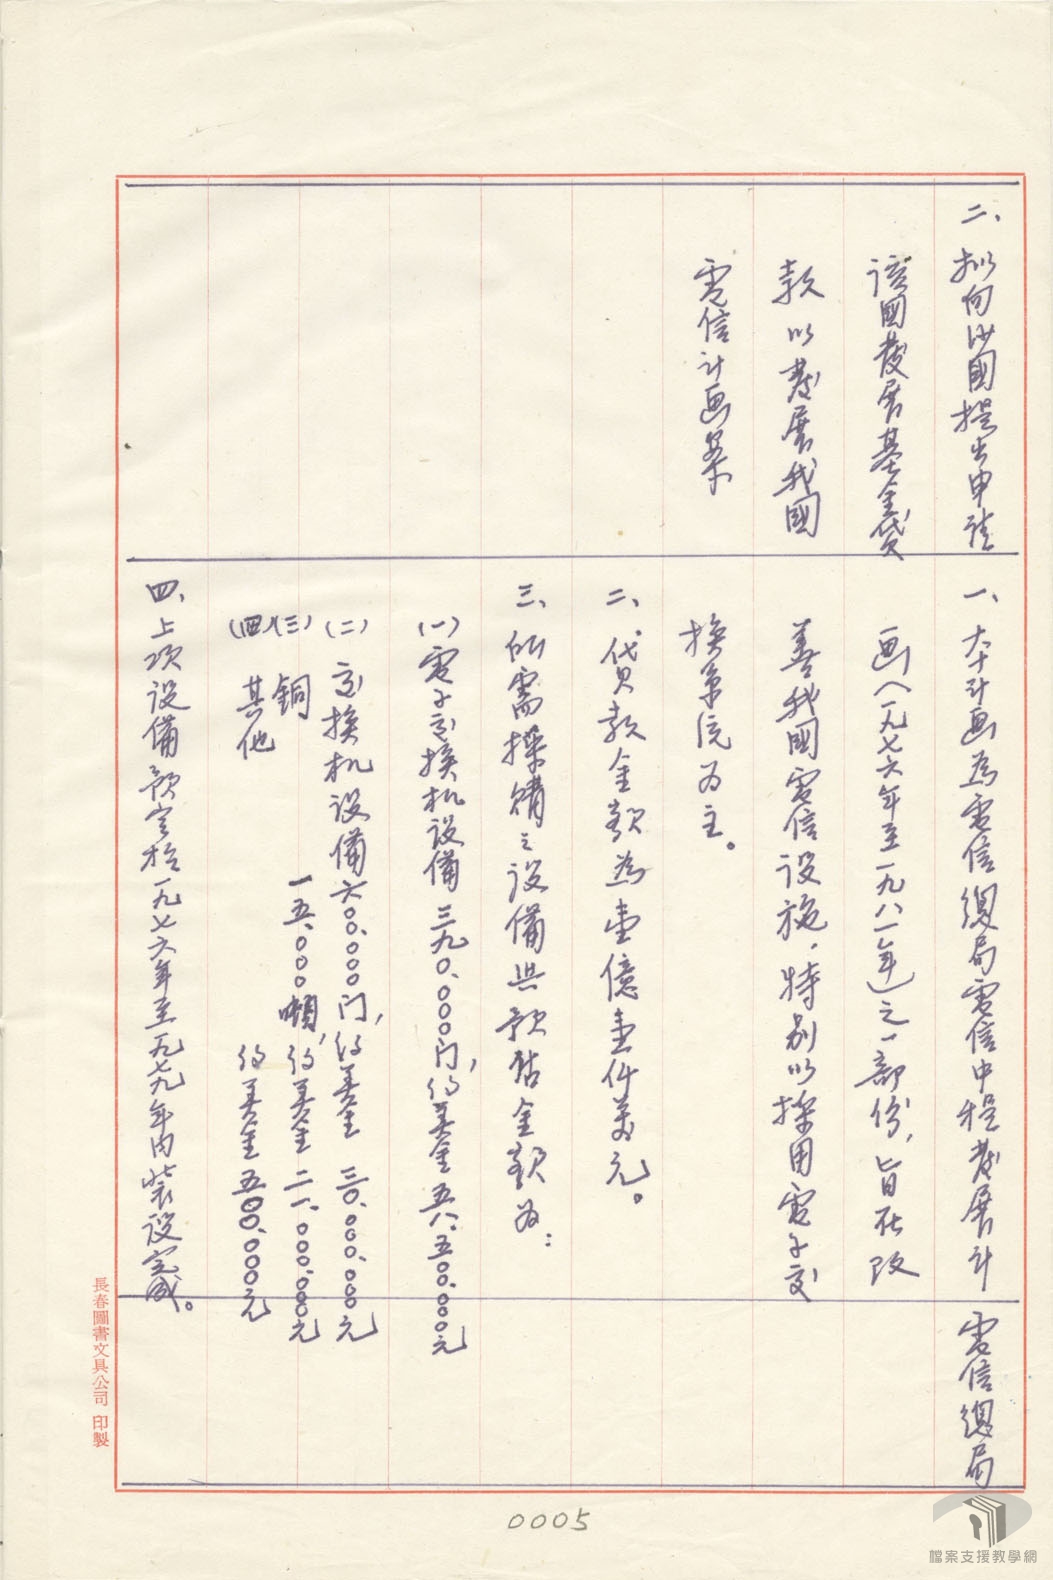 二、拟向沙國提出申請
該國發展基金貸
款以發展我國
電信計画案
一、本計画為電信總局電信中程發展計
画(一九七六年至一九八一年)之一部份,旨在改
善我國電信設施,特別以採用電子交
換系統为主。
二、貸款金額為壹億壹仟萬元。
三、所需採購之設備與預估金額为:
(一)電子交換机設備三九〇、〇〇〇门,約美金五八、五〇〇、〇〇〇元
(二)交換机設備六〇、〇〇〇门,約美金三〇、〇〇〇、〇〇〇元
(三)銅 一五、〇〇〇噸,約美金二一、〇〇〇、〇〇〇元
(四)其他 約美金五〇〇、〇〇〇元
四、上項設備預定於一九七六年至一九七九年內裝設完成。
電信總局
長春圖書文具公司印製
0005
檔案支援教學網